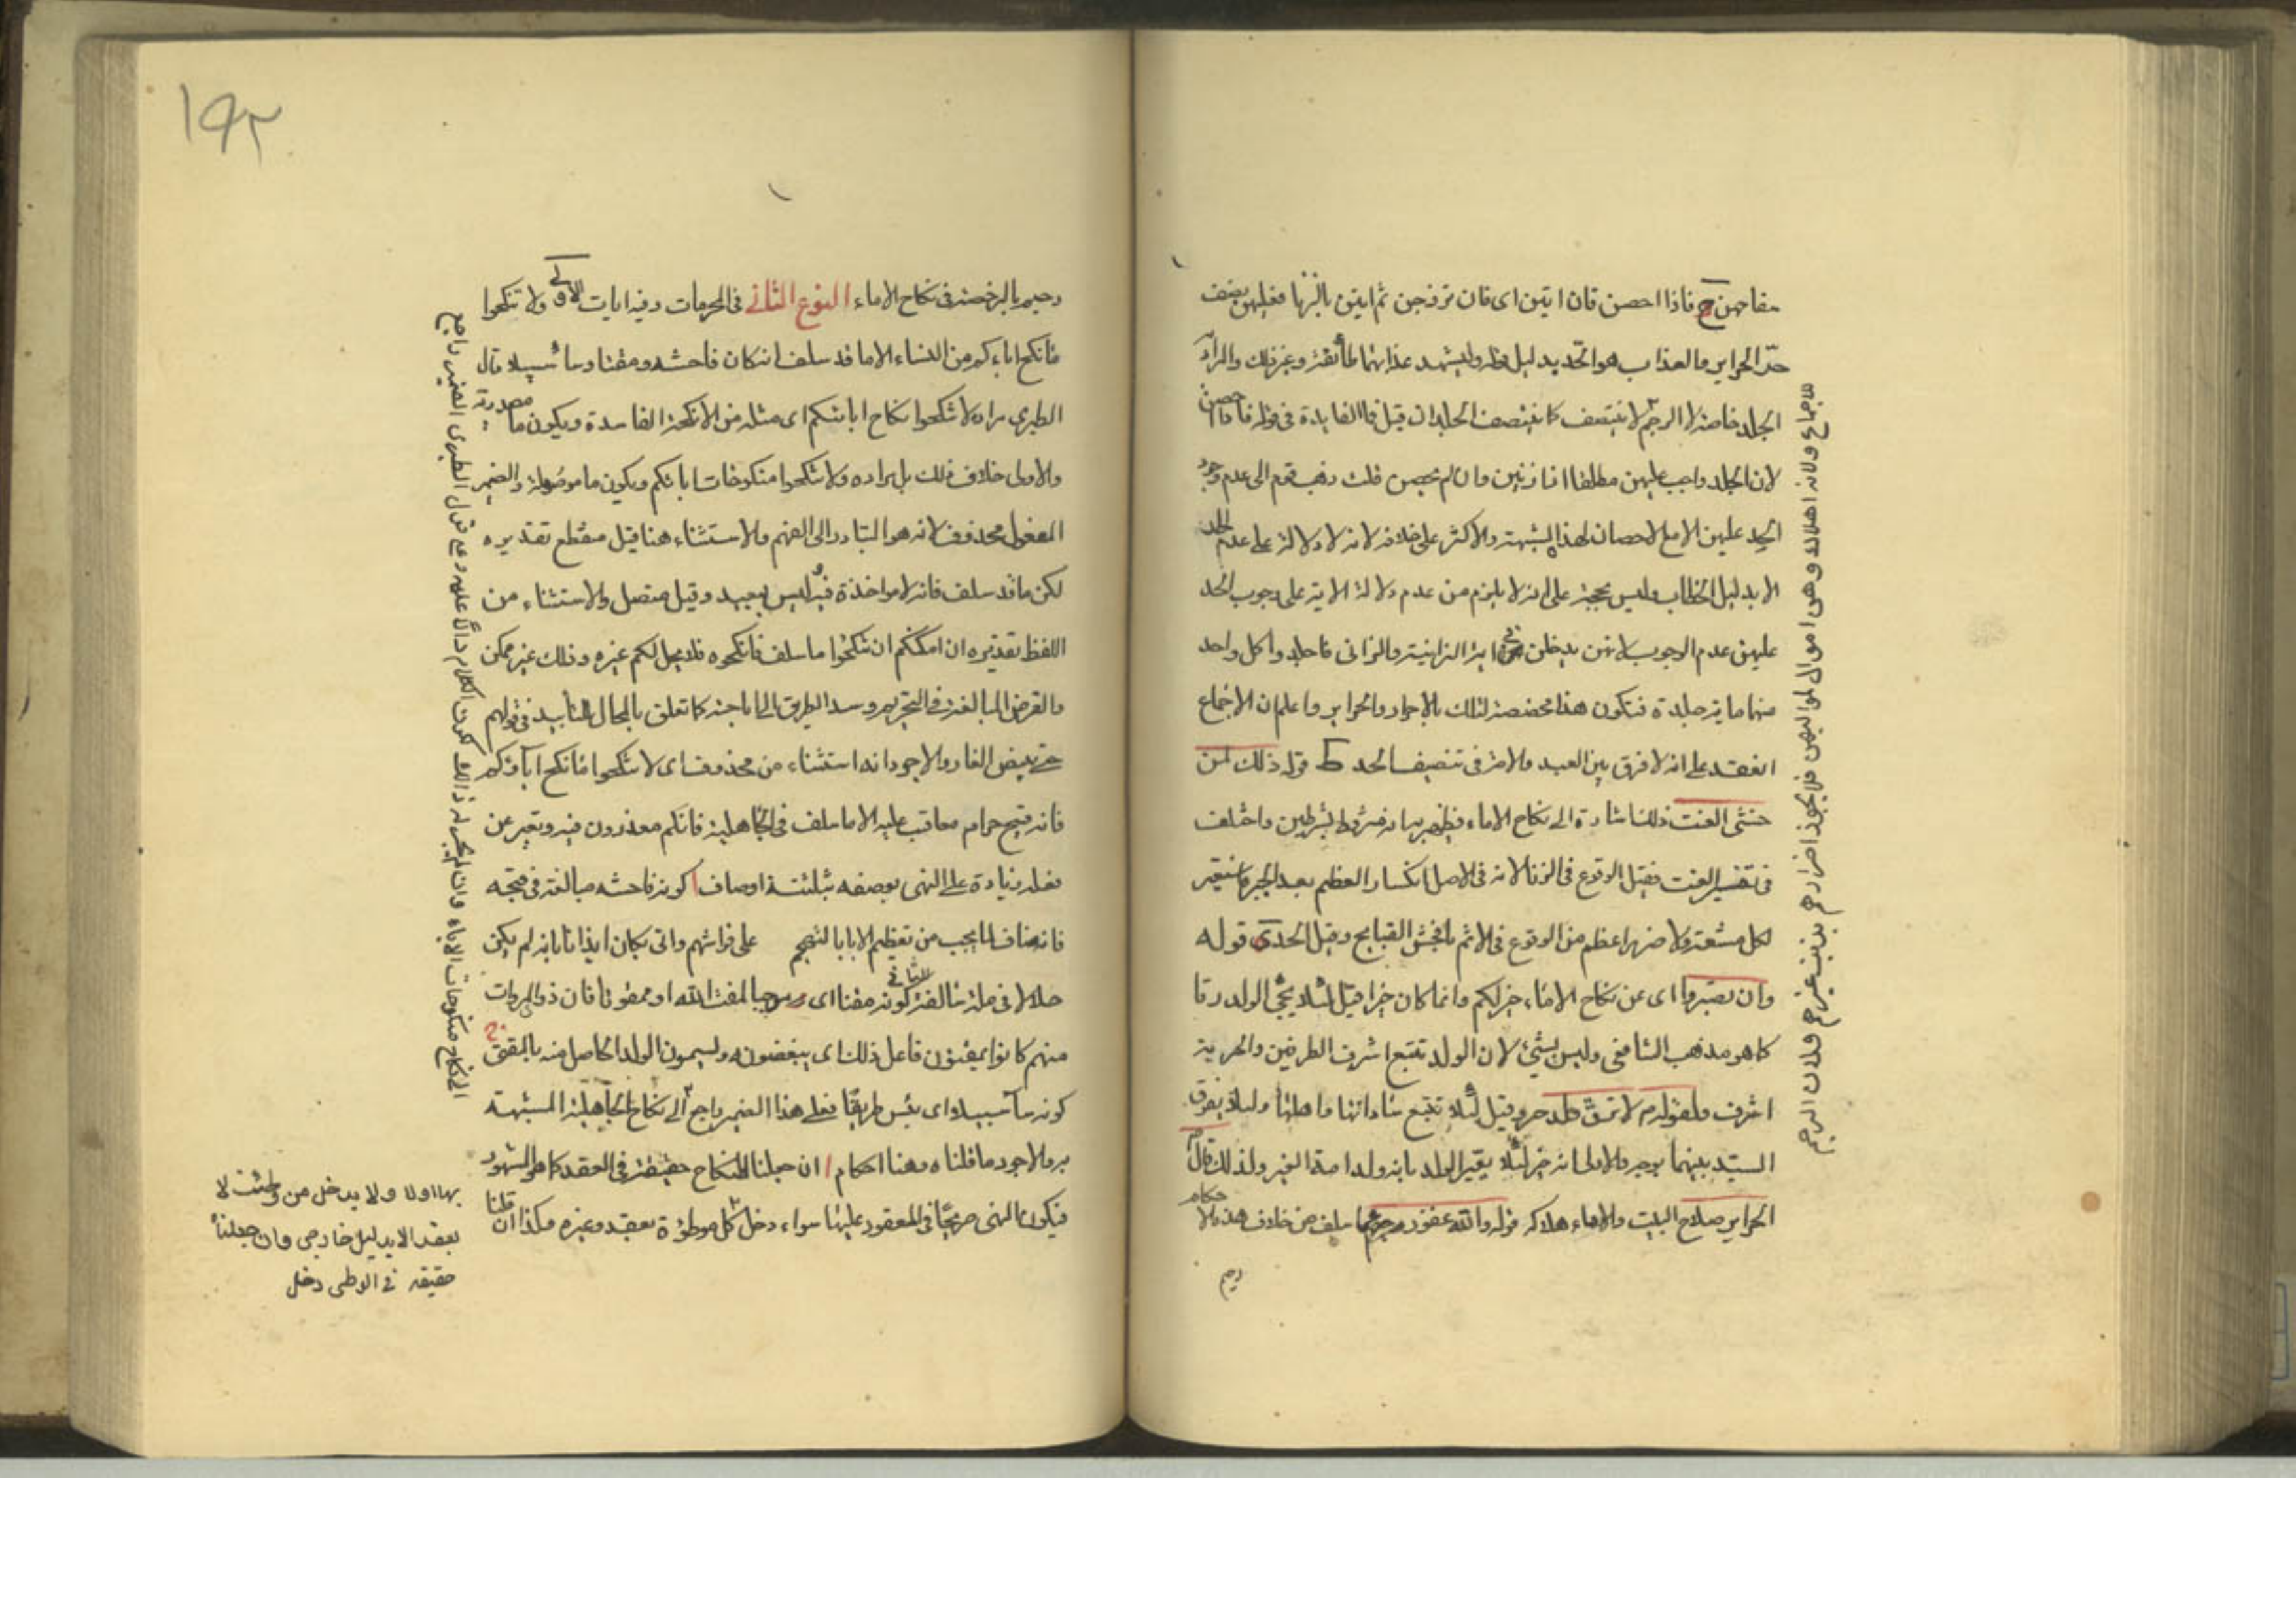 مفاحهن ح فاذا احصن فان اتين اى فان تزوجن ثم اتين بالزنا فعليهن نصف
حدّ الحراير والعذاب هو الحد بدليل قوله وليشهد عذابهما طائفة وغير ذلك والمراد
الجلد خاصة لا الرجم لا ينتصف كما ينتصف الجلد ان قيل فما الفايدة فى قوله فاذا احصن
لان الجلد واجب عليهن مطلقا اذا زنين وان لم يحصن قلت ذهب قوم الى عدم وجود
الحد عليهن الا مع الاحصان لهذه الشبهة والاكثر على خلافه لانه لا دلالة على عدم الحد
الا بدليل الخطاب وليس بحجة على انه لا يلزم من عدم دلالة الاية على وجوب الحد
عليهن عدم الوجوب لانهن يدخلن فى اية الزانية والزانى فاجلدوا كل واحد
منهما ماية جلدة فتكون هذه مخصصة لتلك بالاحرار والحراير واعلم ان الاجماع
انعقد على انه لا فرق بين العبد والامة فى تنصيف الحد ط قوله ذلك لمن
خشى العنت ذلك اشارة الى نكاح الاماء فظهر به انه مشروط بشرطين واختلف
فى تفسير العنت فقيل الوقوع فى الزنا لانه فى الاصل انكسار العظم بعد الجبر فاستعير
لكل مشقة ولا ضرر اعظم من الوقوع فى الاثم بافحش القبايح وقيل الحد ى قوله
وان تصبروا اى عن نكاح الاماء خير لكم وانما كان خيرا قيل لئلا يجئ الولد رقا
كما هو مذهب الشافعى وليس بشئ لان الولد تتبع اشرف الطرفين والحرية
اشرف ولقولهم لا ترق ولد حر وقيل لئلا تتبع شاداتها واهلها ولئلا يفرق
السيّد بينهما بوجه والاولى انه خير لئلا يعير الولد بانه ولد امة الغير ولذلك قال ص
الحراير صلاح البيت والاماء هلاكه قوله والله غفور رحيم لما سلف من خلاف هذه الاحكام
رحيم
للاجماع ولانه اهلاك وهى اموال لمواليهن فلا يجوز اضرارهم بذنب غيرهم فلان الرجم
۱۹۲
رحيم بالرخصة فى نكاح الاماء النوع الثانى فى المحرمات وفيه ايات الاولى ولا تنكحوا
ما نكح اباءكم من النساء الا ما قد سلف انه كان فاحشه ومقتا وساء سبيلا قال
الطبرى مراده لا تنكحوا نكاح ابائكم اى مثله من الانكحة الفاسدة ويكون ما مصدرية
والاولى خلاف ذلك بل مراده ولا تنكحوا منكوحات ابائكم ويكون ما موصولة والضمير
المفعول محذوف لانه هو المتبادر الى الفهم والاستثناء هنا قيل منقطع تقديره
لكن ما قد سلف فانه لا مواخذة فيه وليس ببعيد وقيل متصل والاستثناء من
اللفظ تقديره ان امكنكم ان تنكحوا ما سلف فانكحوه فلا يحل لكم غيره وذلك غير ممكن
والغرض المبالغة فى التحريم وسد الطريق الى اباحته كما تعلق بالمحال للتأبيد فى قولهم
حتى يبيض القار والاجود انه استثناء من محذوف اى لا تنكحوا ما نكح اباؤكم
فانه قبيح حرام معاقب عليه الا ما سلف فى الجاهلية فانكم معذورون فيه وتعبر عن
فعله زيادة على النهى بوصفه بثلثة اوصاف ا كونه فاحشه مبالغة فى قبحه
فانه مناف لما يجب من تعظيم الابا بالتهجم على فراشهم واتى بكان ايذانا بانه لم يكن
حلالا فى ملة سالفة الثانى كونه مقتا اى موجبا لمقت الله او ممقوتا فان ذوى المروات
منهم كانوا يمقتون فاعل ذلك اى يبغضونه ويسمون الولد الحاصل منه بالمقتى ج
كونه ساء سبيلا اى بئس طريقا فعلى هذا الضمير راجع الى نكاح الجاهلية المشبهة
به والاجود ما قلناه وهنا احكام ا ان جعلنا النكاح حقيقة فى العقد كما هو المشهور
فيكون النهى صريحا فى المعقود عليها سواء دخل كل موطؤة بعقد وغيره وكذا ان قلنا
بها اولا ولا يدخل من وطئت لا
بعقد الا بدليل خارجى وان جعلناه
حقيقه فى الوطى دخل
الى نكاح منكوحات الاباء وان لم يجر له ذلك لكون الكلام دالا عليه وعلى قول الطبرى الضمير راجع